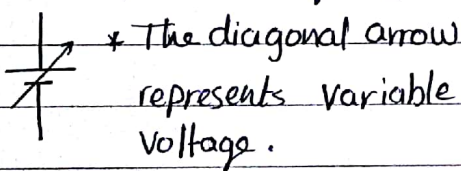 * The diagonal arrow
represents variable
voltage.